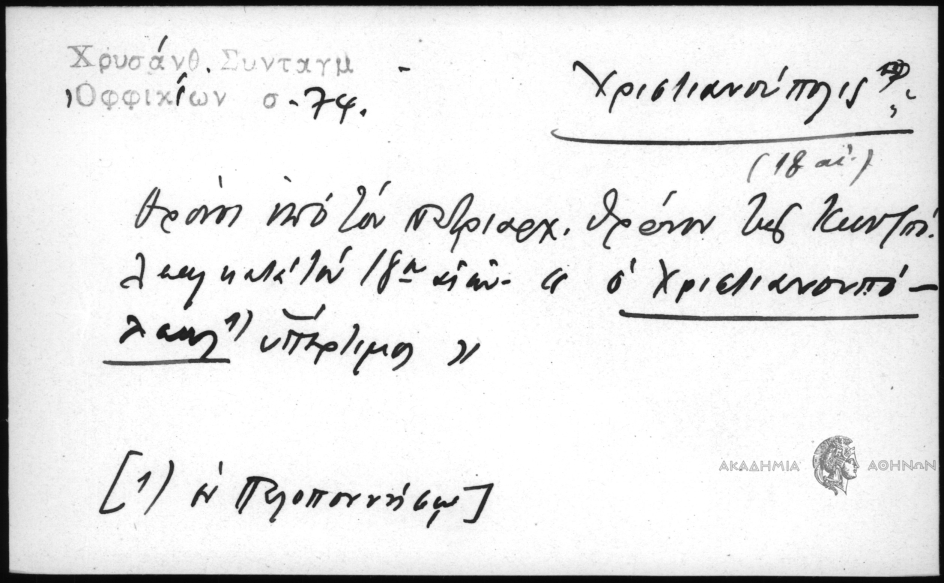 Χρυσάνθ. Συνταγμ -
Ὀφφικίων σ. 74.
Χριστιανούπολις
(18 αἰ.)
θρόνοι ὑπό τόν πατριαρχ. θρόνον της Κων/πό-
λεως κατά τόν 18ον αἰῶν. « ὁ Χριστιανουπό-
λεως 1) ὑπέρτιμος »
[1) ἐν Πελοποννήσῳ]
ΑΚΑΔΗΜΙΑ ΑΘΗΝΩΝ